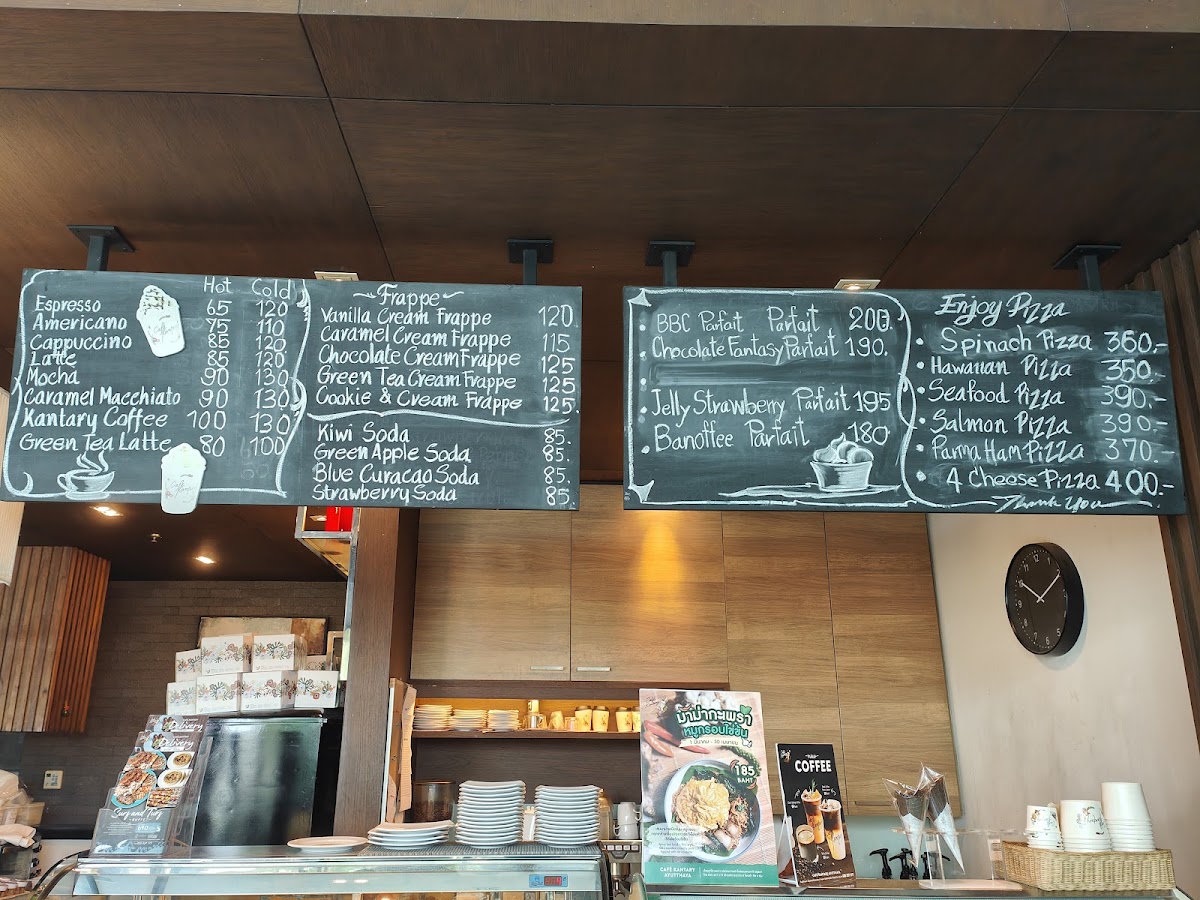 Hot Cold
Espresso 65 120
Americano 75 110
Cappuccino 85 120
Latte 85 120
Mocha 90 130
Caramel Macchiato 90 130
Kantary Coffee 100 130
Green Tea Latte 80 100
Frappe
Vanilla Cream Frappe 120
Caramel Cream Frappe 115
Chocolate Cream Frappe 125
Green Tea Cream Frappe 125
Cookie & Cream Frappe 125
Kiwi Soda 85.
Green Apple Soda 85.
Blue Curacao Soda 85.
Strawberry Soda 85.
BBC Parfait Parfait 200.
Chocolate Fantasy Parfait 190.
Jelly Strawberry Parfait 195
Banoffee Parfait 180
Enjoy Pizza
Spinach Pizza 360.-
Hawaiian Pizza 350.-
Seafood Pizza 390.-
Salmon Pizza 390.-
Parma Ham Pizza 370.-
4 Cheese Pizza 400.-
Thank You
Delivery
Surf and Turf
BUFFET
มาม่ากะเพรา
หมูกรอบไข่ข้น
185
BAHT
CAFÉ KANTARY
AYUTTHAYA
COFFEE